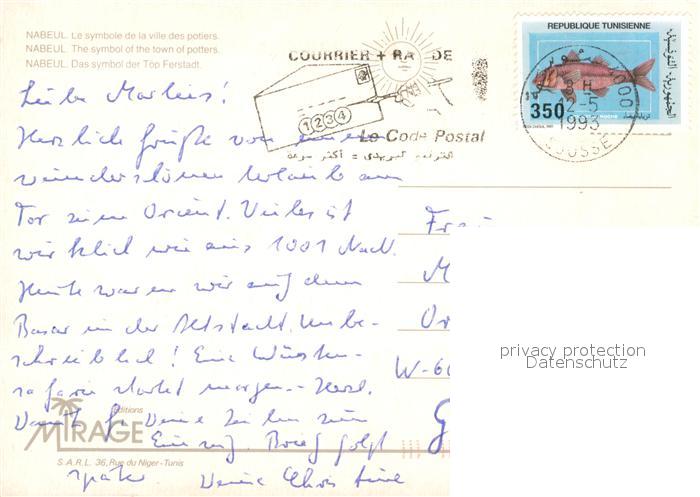 NABEUL. Le symbole de la ville des potiers.
NABEUL. The symbol of the town of potters.
NABEUL. Das symbol der Töp Ferstadt.
COURRIER + RA DE
1 2 3 4
Le Code Postal
REPUBLIQUE TUNISIENNE
الجمهورية التونسية
350
2-5
1993
SOUSSE
Liebe Marlies!
Herzliche Grüße von einem
wunderschönen Urlaub am
Tor zum Orient. Vieles ist
wirklich wie aus 1001 Nacht.
Heute waren wir auf dem
Basar in der Altstadt. Unbe-
schreiblich! Eine Wüsten-
safari startet morgen. - Herzl.
Dank für Deine Zeilen zum
Einzug. Brief folgt
später Deine Christine
Fr
M
Or
W-60
G
éditions
MIRAGE
S.A.R.L. 36, Rue du Niger-Tunis
privacy protection
Datenschutz